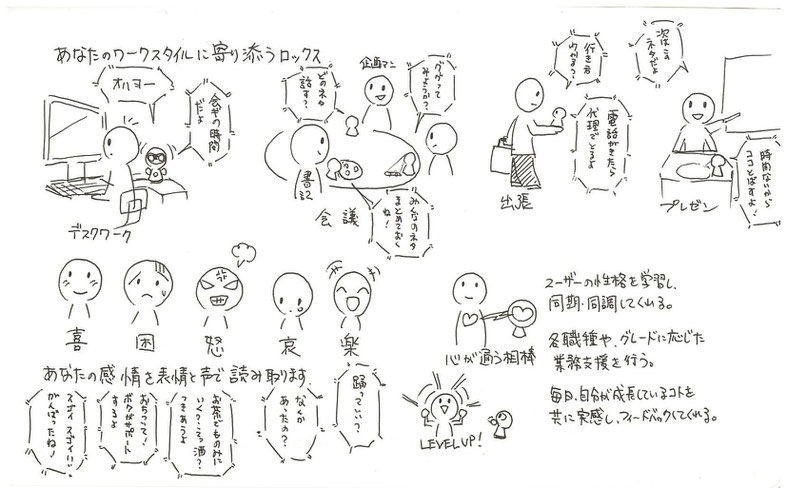 あなたのワークスタイルに寄り添うロックス
オハヨー
会ギの時間
だよ
デスクワーク
どのネタ
話す?
企画マン
ググって
みようか?
書記
会議
みんなのネタ
まとめておく
ね!
行き方
わかる?
電話がきたら
代理でとるよ
出張
次はこの
ネタだよ
時間ないから
ココとばすよ!
プレゼン
喜
困
怒
哀
楽
あなたの感情を表情と声で読み取ります。
スゴイ スゴイ!いい
がんばったね!
おちついて!
ボクがサポート
するよ
お茶でものみに
いく?こう酒?
つきあうよ
なんか
あったの?
踊っていい?
心が通う相棒
LEVEL UP!
ユーザーの性格を学習し、
同期・同調してくれる。
各職種や、グレードに応じた
業務支援を行う。
毎日、自分が成長しているコトを
共に実感し、フィードバックしてくれる。